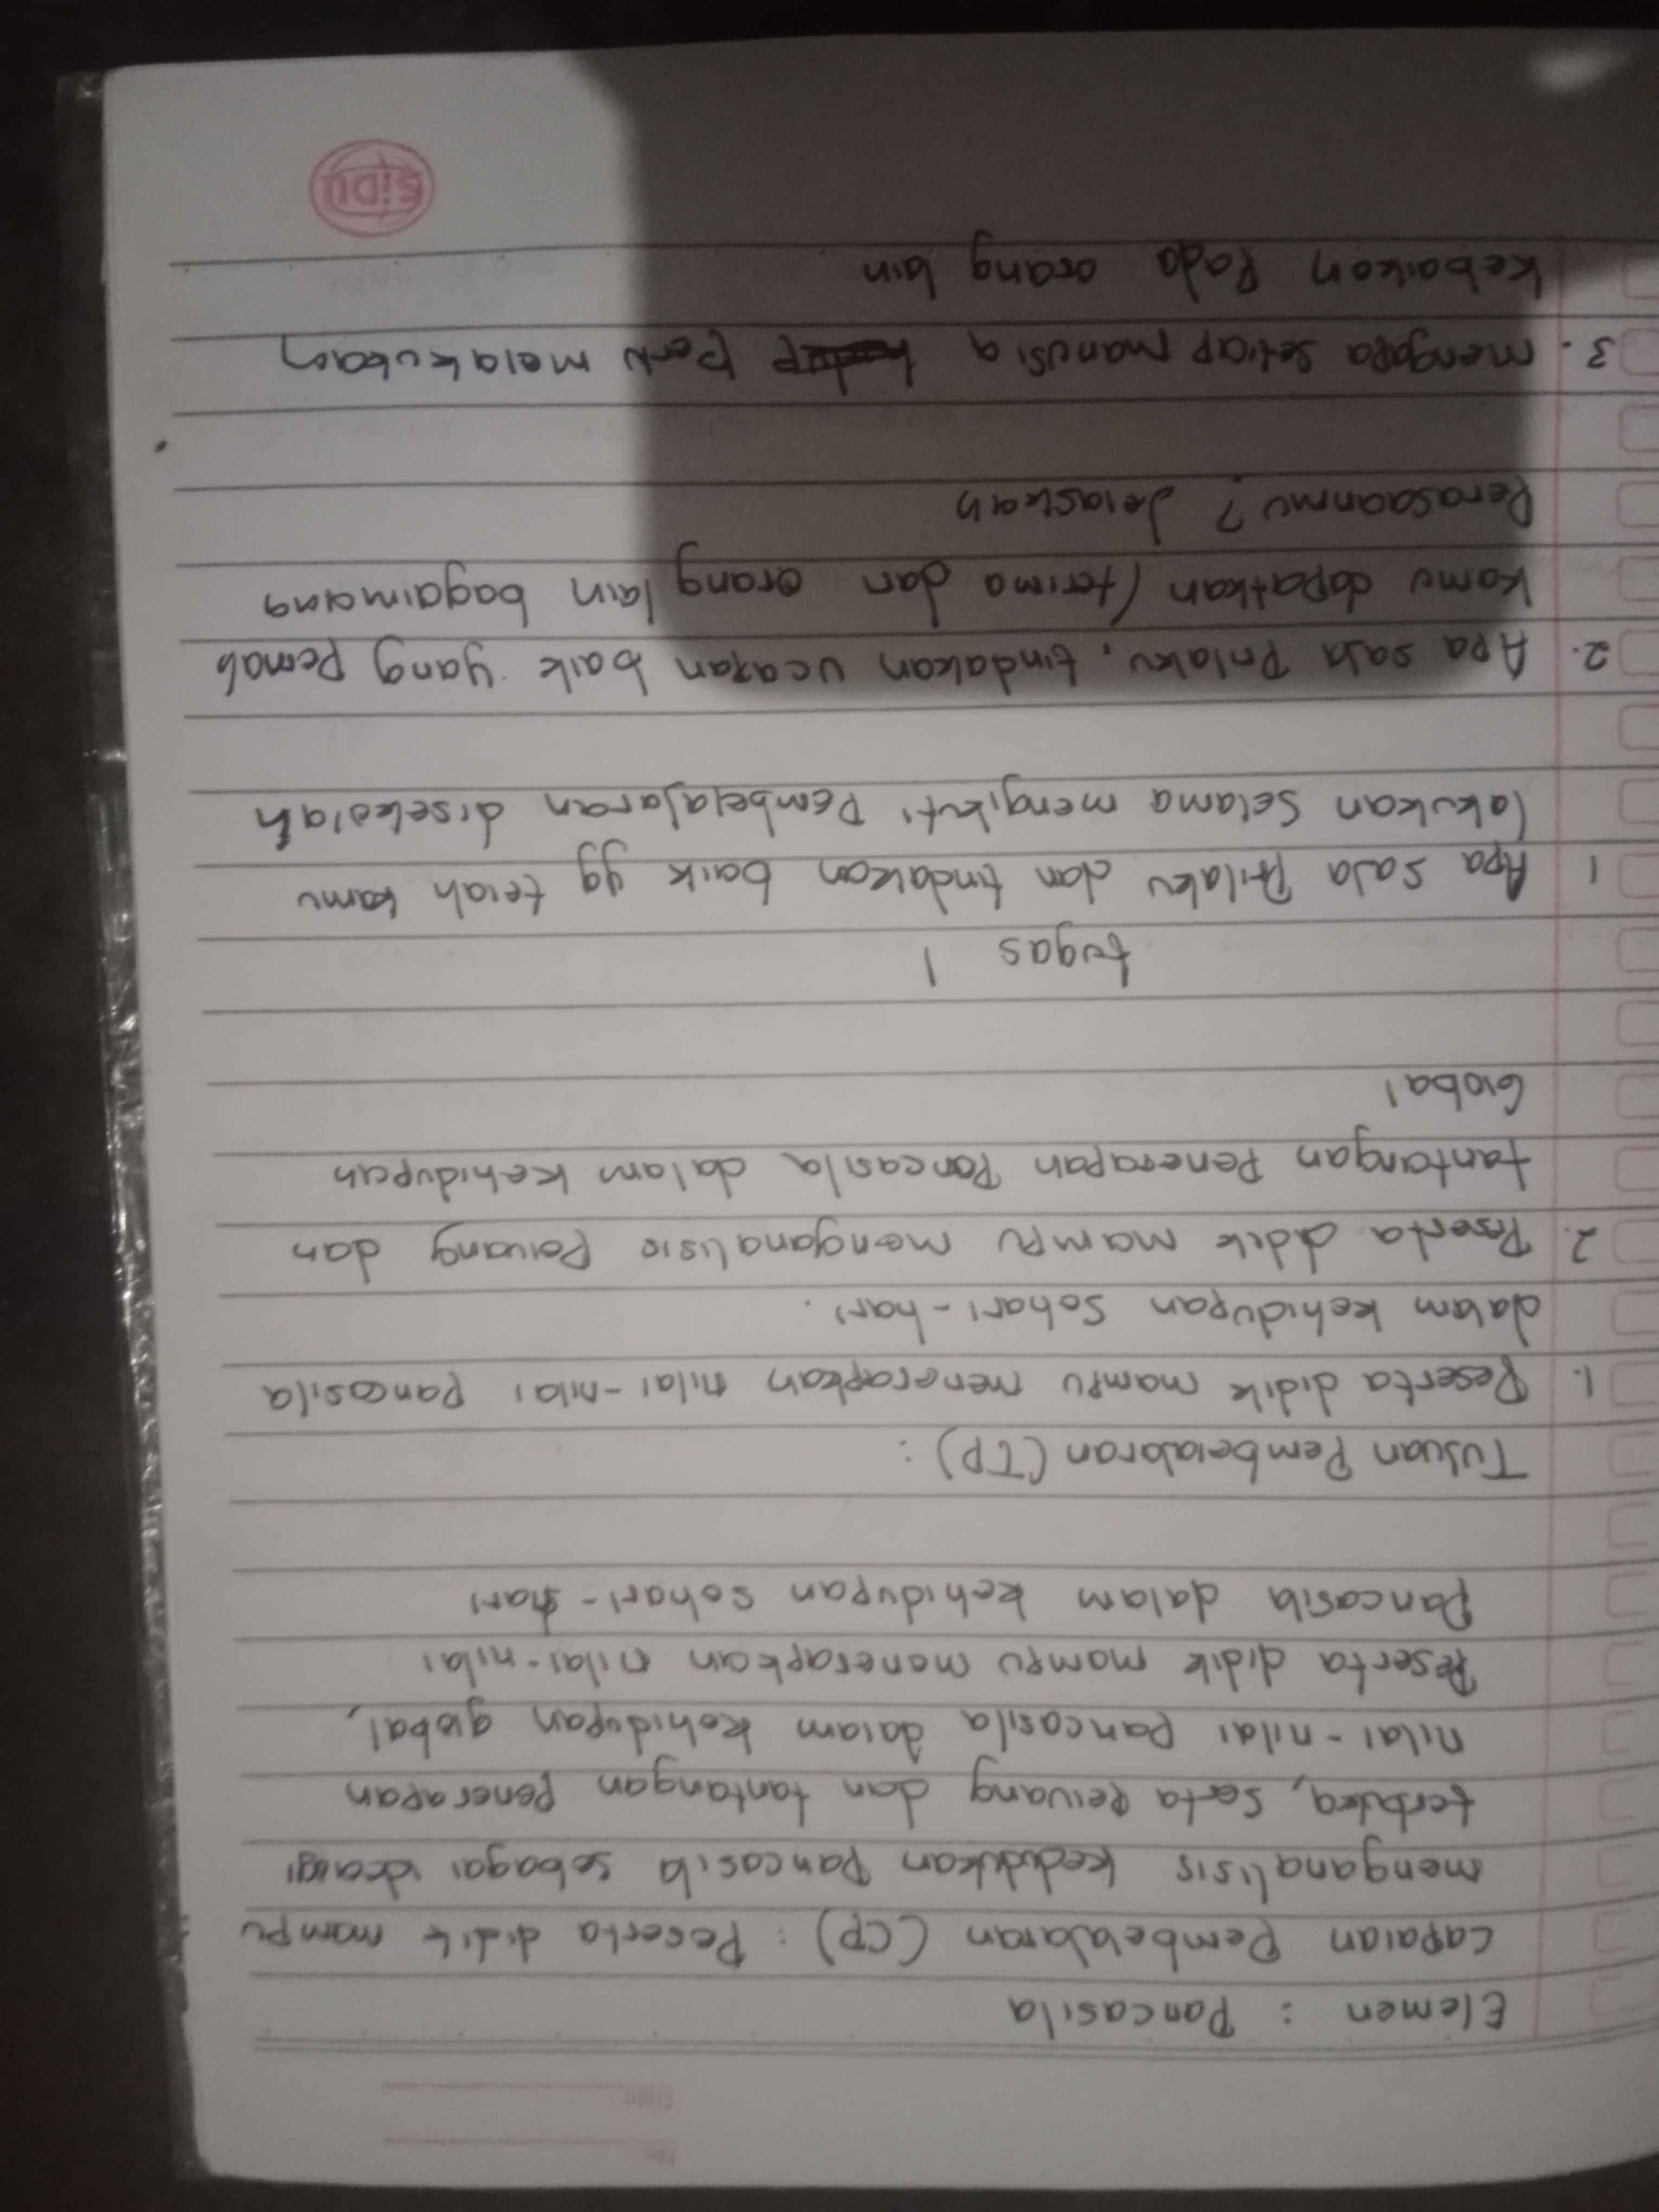 No.
Date
Elemen : Pancasila
Capaian Pembelajaran (CP) : Peserta didik mampu
menganalisis kedudukan Pancasila sebagai ideologi
terbuka, serta peluang dan tantangan penerapan
nilai-nilai Pancasila dalam kehidupan global,
Peserta didik mampu menerapkan nilai-nilai
Pancasila dalam kehidupan sehari-hari
Tujuan Pembelajaran (TP) :
1. Peserta didik mampu menerapkan nilai-nilai Pancasila
dalam kehidupan sehari-hari.
2. Peserta didik mampu menganalisis Peluang dan
tantangan Penerapan Pancasila dalam kehidupan
Global
tugas 1
1 Apa saja Prilaku dan tindakan baik yg telah kamu
lakukan selama mengikuti Pembelajaran disekolah
2. Apa saja Prilaku, tindakan ucapan baik yang pernah
kamu dapatkan / terima dari orang lain bagaimana
Perasaanmu? Jelaskan
3. mengapa setiap manusia perlu melakukan
kebaikan Pada orang lain
SiDU